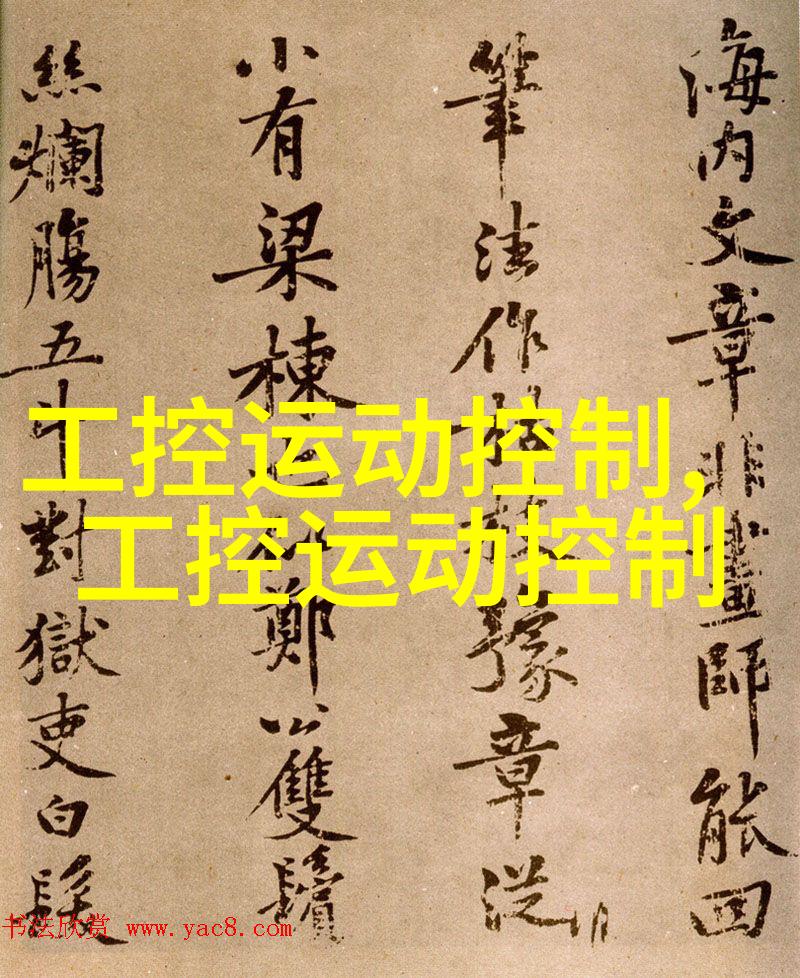 海内文章非畫師能回
筆法作枯枝豫章從
小有梁棟也似鄭公雙鬢
絲爛腸五斗對獄吏白髮
工控运动控制,
工控运动控制
书法欣赏 www.yac8.com